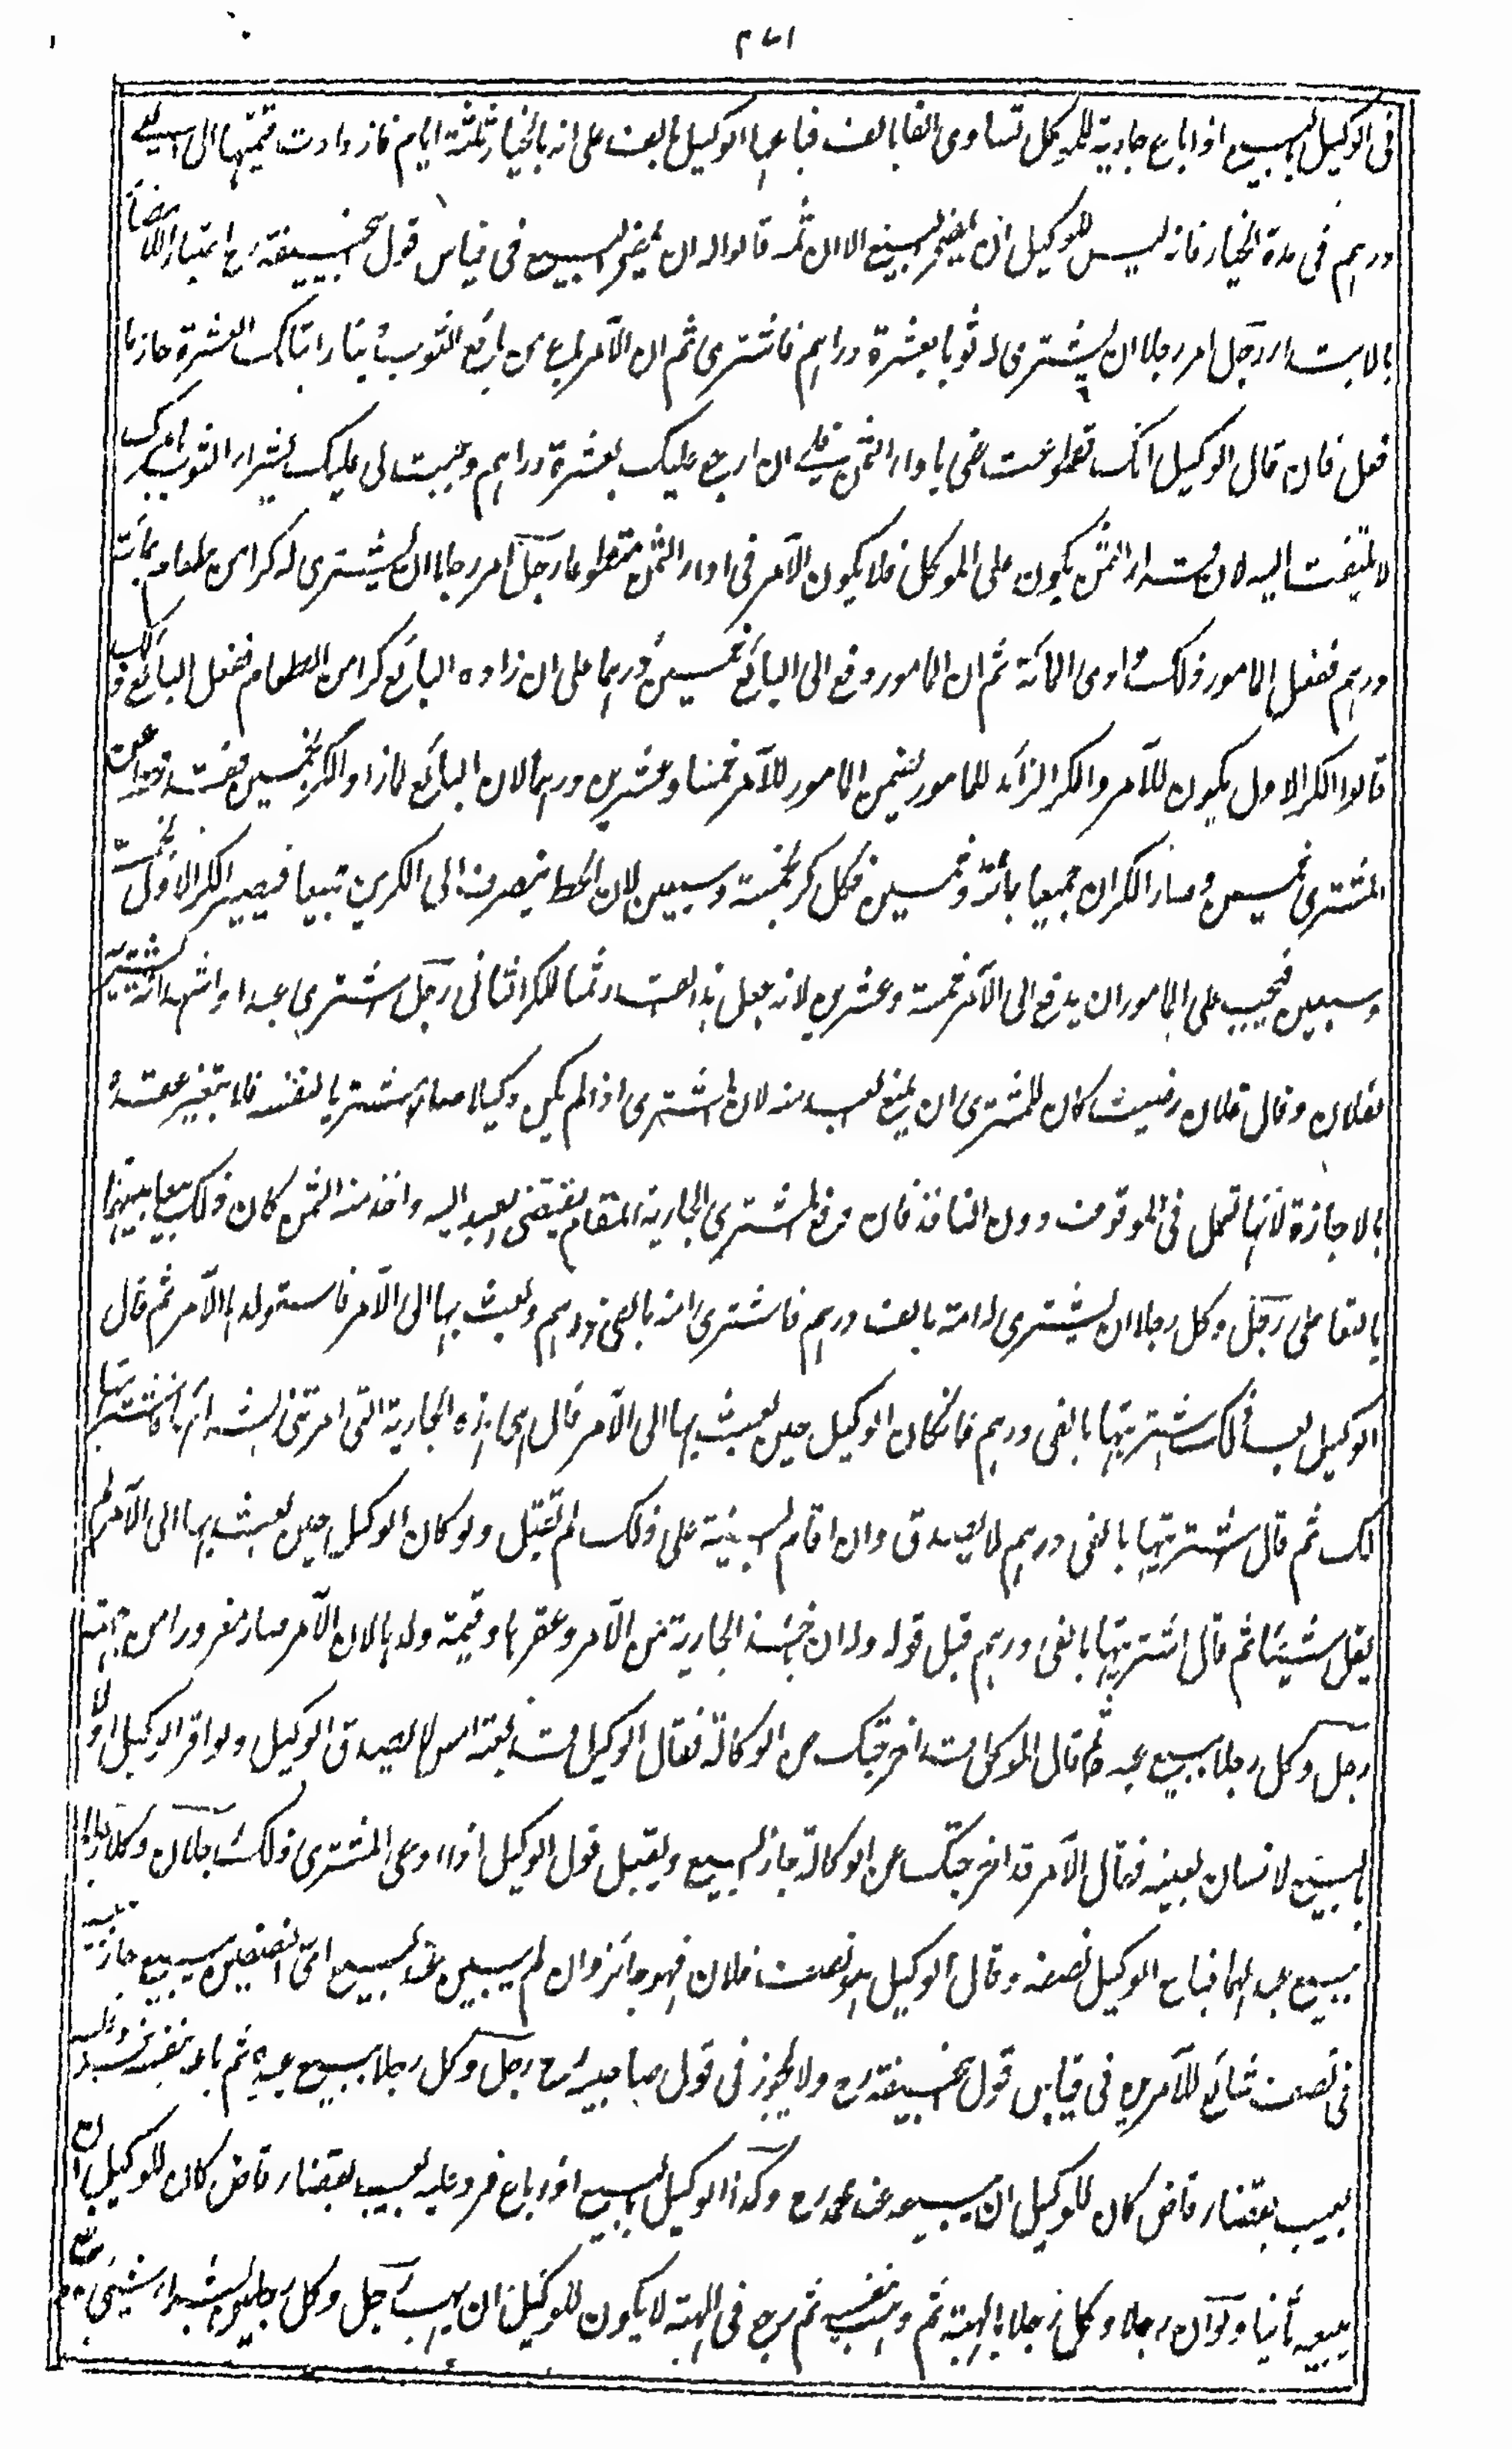 ٢٧١
في الوكيل بالبيع اذا باع جارية للموكل تساوي الفا بالف فباعها الوكيل بالف على انه بالخيار ثلثة ايام فازدادت قيمتها الى الفي
درهم في مدة الخيار فانه ليس للوكيل ان يمضي البيع الا ان ثمه قالوا له ان يمضي البيع في قياس قول ابيحنيفة رح اعتبارا للامضاء
بالابتداء رجل امر رجلا ان يشتري له ثوبا بعشرة دراهم فاشترى ثم ان الآمر مع من بائع الثوب العشرة جاز ما
فعل فان قال الوكيل انك تطوعت عني باداء الثمن فلي ان ارجع عليك بعشرة دراهم وجبت لي عليك بشراء الثوب بامرك
لا يلتفت اليه لان ابتداء الثمن يكون على الموكل فلا يكون الآمر في اداء الثمن متطوعا رجل امر رجلا ان يشتري له كرا من طعام بمائة
درهم ففعل المامور ذلك وادى المائة ثم ان المامور دفع الى البائع خمسين درهما على ان زاده البائع كرا من الطعام ففعل البائع ذلك
قالوا الكر الاول يكون للآمر والكر الزائد للمامور يضمن المامور للآمر خمسا وعشرين درهما لان البائع لما زاد الكر بخمسين فقد حط عن
المشتري خمسين وصار الكران جميعا بمائة وخمسين فكل كر بخمسة وسبعين لان الحط ينصرف الى الكرين جميعا فيصير الكر الاول بخمسة
وسبعين فيجب على المامور ان يدفع الى الآمر خمسة وعشرين لانه جعل هذا القدر ثمنا للكر الثاني رجل اشترى عبدا واشهد انه يشتريه
لفلان وقال فلان رضيت كان للمشتري ان يمنع العبد منه لان المشتري اذا لم يكن وكيلا صار مشتريا لنفسه فلا يتغير عقده
بالاجازة لانها تعمل في الموقوف دون النافذ فان دفع المشتري اليه واخذ منه الثمن كان ذلك بيعا بينهما
بالتعاطي رجل وكل رجلا ان يشتري له امة بالف درهم فاشترى امة بالفي درهم وبعث بها الى الآمر فاستولدها الآمر ثم قال
الوكيل بعد ذلك اشتريتها بالفي درهم فان كان الوكيل حين بعث بها الى الآمر قال هي هذه الجارية التي امرتني بشرائها فاشتريتها
لك ثم قال اشتريتها بالفي درهم لا يصدق وان اقام البينة على ذلك لم تقبل ولو كان الوكيل حين بعث بها الى الآمر لم
يقل شيئا ثم قال اشتريتها بالفي درهم قبل قوله وله ان ياخذ الجارية من الآمر وعقرها وقيمة ولدها لان الآمر صار مغرورا من جهته
رجل وكل رجلا ببيع عبده ثم قال الموكل قد اخرجتك من الوكالة فقال الوكيل قد بعته امس لا يصدق الوكيل ولو اقر الوكيل اولا
بالبيع لانسان بعينه فقال الآمر قد اخرجتك عن الوكالة جاز البيع ويقبل قول الوكيل اذا ادعى المشتري ذلك رجلان وكلا رجلا
ببيع عبد لهما فباع الوكيل نصفه وقال الوكيل هو نصف فلان فهو جائز وان لم يبين عند البيع اي النصفين يبيع جاز بيعه
في نصف شائع للآمرين في قياس قول ابيحنيفة رح ولا يجوز في قول صاحبيه رح رجل وكل رجلا ببيع عبده ثم باعه بنفسه فرد عليه
بعيب بقضاء قاض كان للوكيل ان يبيعه عند محمد رح وكذا الوكيل بالبيع اذا باع فرد عليه بعيب بقضاء قاض كان للوكيل ان
يبيعه ثانيا ولو ان رجلا وكل رجلا بالهبة ثم وهب بنفسه ثم رجع في الهبة لا يكون للوكيل ان يهب رجل وكل رجلين بشراء شيء